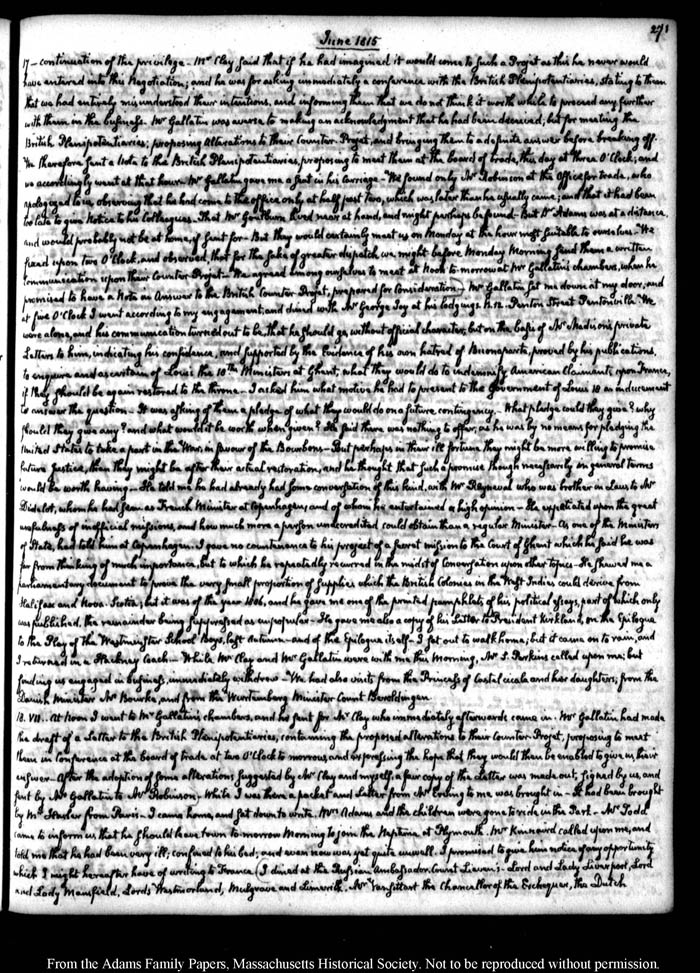 June 1815
271
17 — continuation of the privilege. Mr Clay said that if he had imagined it would come to such a Projet as this he never would
have entered into this Negotiation; and he was for asking immediately a conference with the British Plenipotentiaries, stating to them
that we had entirely misunderstood their intentions, and informing them that we do not think it worth while to proceed any further
with them in the business. Mr Gallatin was averse to making an acknowledgment that he had been deceived; but for meeting the
British Plenipotentiaries; proposing alterations to their Counter-Projet, and bringing them to a definite answer before breaking off.
We therefore sent a Note to the British Plenipotentiaries, proposing to meet them at the board of trade, this day at three O'Clock; and
we accordingly went at that hour. Mr Gallatin gave me a seat in his Carriage. We found only Mr Robinson at the Office for trade, who
apologized to us, observing that he had come to the office only at half past two, which was later than he usually came; and that it had been
too late to give Notice to his Colleagues. That Mr Goulburn lived near at hand, and might perhaps be found — But Dr Adams was at a distance,
and would probably not be at home, if sent for — But they would certainly meet us on Monday at the hour most suitable to ourselves. We
fixed upon two O'Clock, and observed, that for the sake of greater dispatch, we might before Monday Morning send them a written
communication upon their Counter-Projet — We agreed among ourselves to meet at Noon to-morrow at Mr Gallatin's chambers, when he
promised to have a Note in Answer to the British Counter Projet, prepared for Consideration — Mr Gallatin set me down at my door; and
at five O'Clock I went according to my engagement, and dined with Mr George Joy at his lodgings N. 12. Penton Street Pentonville. We
were alone, and his communication turned out to be, that he should go, without official character, but on the basis of Mr Madison's private
Letters to him, indicating his confidence, and supported by the Evidence of his own hatred of Buonaparte, proved by his publications,
to enquire and ascertain of Louis the 18th Ministers at Ghent, what they would do to indemnify American Claimants upon France,
if they should be again restored to the throne — I asked him what motive he had to present to the Government of Louis 18 as an inducement
to answer the question — It was asking of them a pledge of what they would do on a future contingency. — What pledge could they give? why
should they give any? and what would it be worth when given? He said there was nothing to offer, as he was by no means for pledging the
United States to take a part in the War, in favour of the Bourbons — But perhaps in their ill fortune they might be more willing to promise
future justice, than they might be after their actual restoration, and he thought that such a promise though necessarily in general terms
would be worth having — He told me he had already had some conversation of this kind, with Mr Rayneval who was brother in law to Mr
Didelot, whom he had seen as French Minister at Copenhagen; and of whom he entertained a high opinion — He expatiated upon the great
usefulness of inofficial missions, and how much more a person unaccredited could obtain than a regular Minister — As one of the Ministers
of State, had told him at Copenhagen. I gave no countenance to his project of a secret mission to the Court of Ghent which he said he was
far from thinking of much importance, but to which he repeatedly recurred in the midst of Conversation upon other topics — He shewed me a
parliamentary document to prove the very small proportion of supplies which the British Colonies in the West Indies could derive from
Halifax and Nova-Scotia; but it was of the year 1806, and he gave me one of the printed pamphlets of his political essays, part of which only
was published, the remainder being suppressed as unpopular — He gave me also a copy of his Letter to President Kirkland, on the Epilogue
to the Play of the Westminster School Boys, last Autumn — and of the Epilogue itself — I set out to walk home; but it came on to rain, and
I returned in a Hackney Coach — While Mr Clay and Mr Gallatin were with me this Morning, Mr S. Perkins called upon me; but
finding us engaged in business, immediately withdrew — We had also visits from the Princess of Castelcicala and her daughters; from the
Danish Minister Mr Bourke, and from the Wurtemberg Minister Count Beroldingen.
18. VII. At Noon I went to Mr Gallatin's chambers, and he sent for Mr Clay who immediately afterwards came in. Mr Gallatin had made
the draft of a Letter to the British Plenipotentiaries, containing the proposed alterations to their Counter-Projet, proposing to meet
them in conference at the board of trade at two O'Clock to-morrow, and expressing the hope that they would then be enabled to give us their
answer — After the adoption of some alterations suggested by Mr Clay and myself, a fair copy of the Letter was made out, signed by us, and
sent by Mr Gallatin to Mr Robinson. While I was there a packet and Letter from Mr to me was brought in — It had been brought
by Mr from Paris — I came home, and sat down to write. Mrs Adams and the children were gone to ride in the Park — Mr Todd
came to inform us that he should leave town to-morrow Morning to join the Neptune at Plymouth. Mr Kinnaird called upon me, and
told me that he had been very ill; confined to his bed; and even now was yet quite unwell. I promised to give him notice of any opportunity
which I might hereafter have of writing to France. I dined at the Russian Ambassador Count Lieven's — Lord and Lady Liverpool, Lord
and Lady Mansfield, Lords Westmorland, Mulgrave and Limerick. Mr Vansittart the Chancellor of the Exchequer, the Dutch
From the Adams Family Papers, Massachusetts Historical Society. Not to be reproduced without permission.